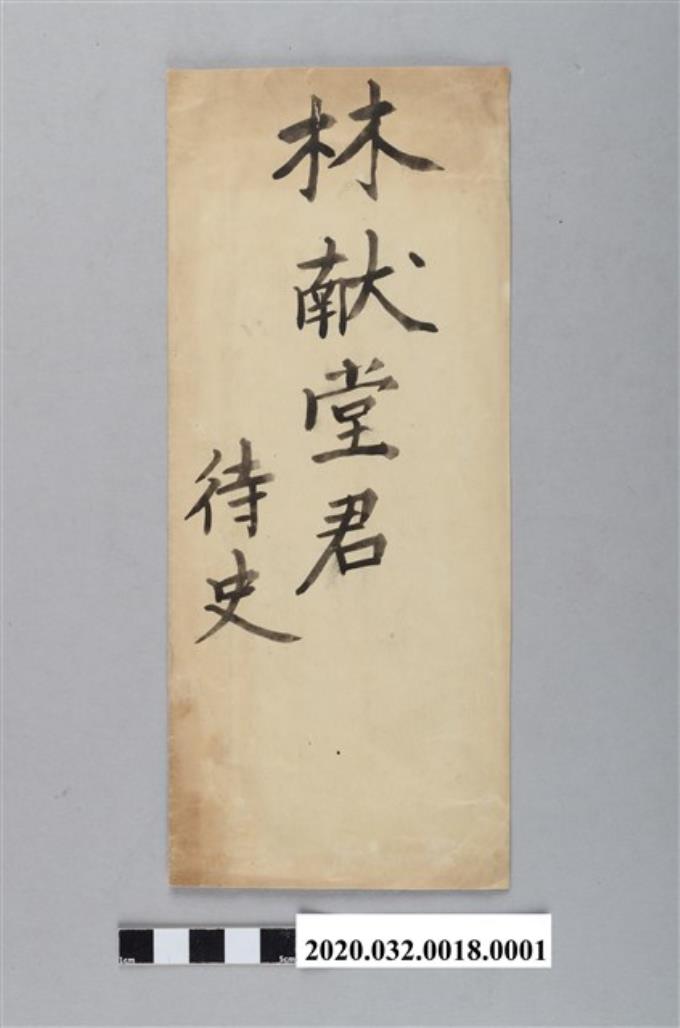 林献堂君
待史
1cm
5cm
2020.032.0018.0001